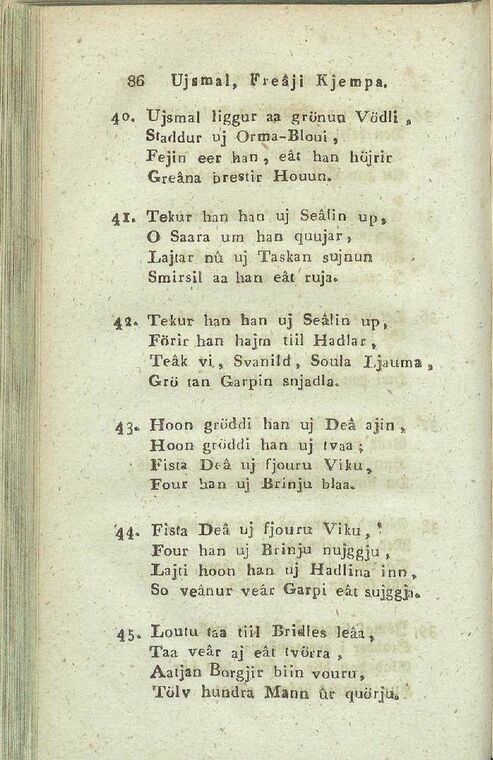 86 Ujsmal, Freâji Kjempa.
40. Ujsmal liggur aa grönun Vödli,
Staddur uj Orma-Bloui,
Fejin eer han, eât han höjrir
Greâna brestir Houun.
41. Tekur han han uj Seâlin up,
O Saara um han quujar,
Lajtar nû uj Taskan sujnun
Smirsil aa han eât ruja.
42. Tekur han han uj Seâlin up,
Förir han hajm tiil Hadlar,
Teâk vi, Svanild, Soula Ljauma,
Grö tan Garpin snjadla.
43. Hoon gröddi han uj Deâ ajin,
Hoon gröddi han uj tvaa;
Fista Deâ uj fjouru Viku,
Four han uj Brinju blaa.
44. Fista Deâ uj fjouru Viku,
Four han uj Brinju nujggju,
Lajti hoon han uj Hadlina inn,
So veânur veâr Garpi eât sujggja.
45. Loutu taa tiil Bridles leâa,
Taa veâr aj eât tvörra,
Aatjan Borgjir biin vouru,
Tölv hundra Mann ûr quörju.